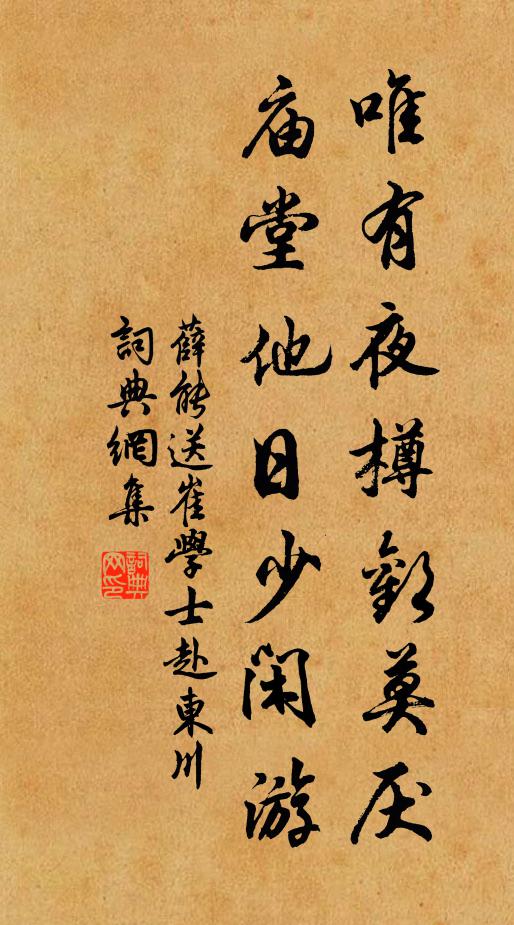 唯有夜樽歡莫厌
庙堂他日少闲游
薛能送崔學士赴東川
詞典網集
詞典网印